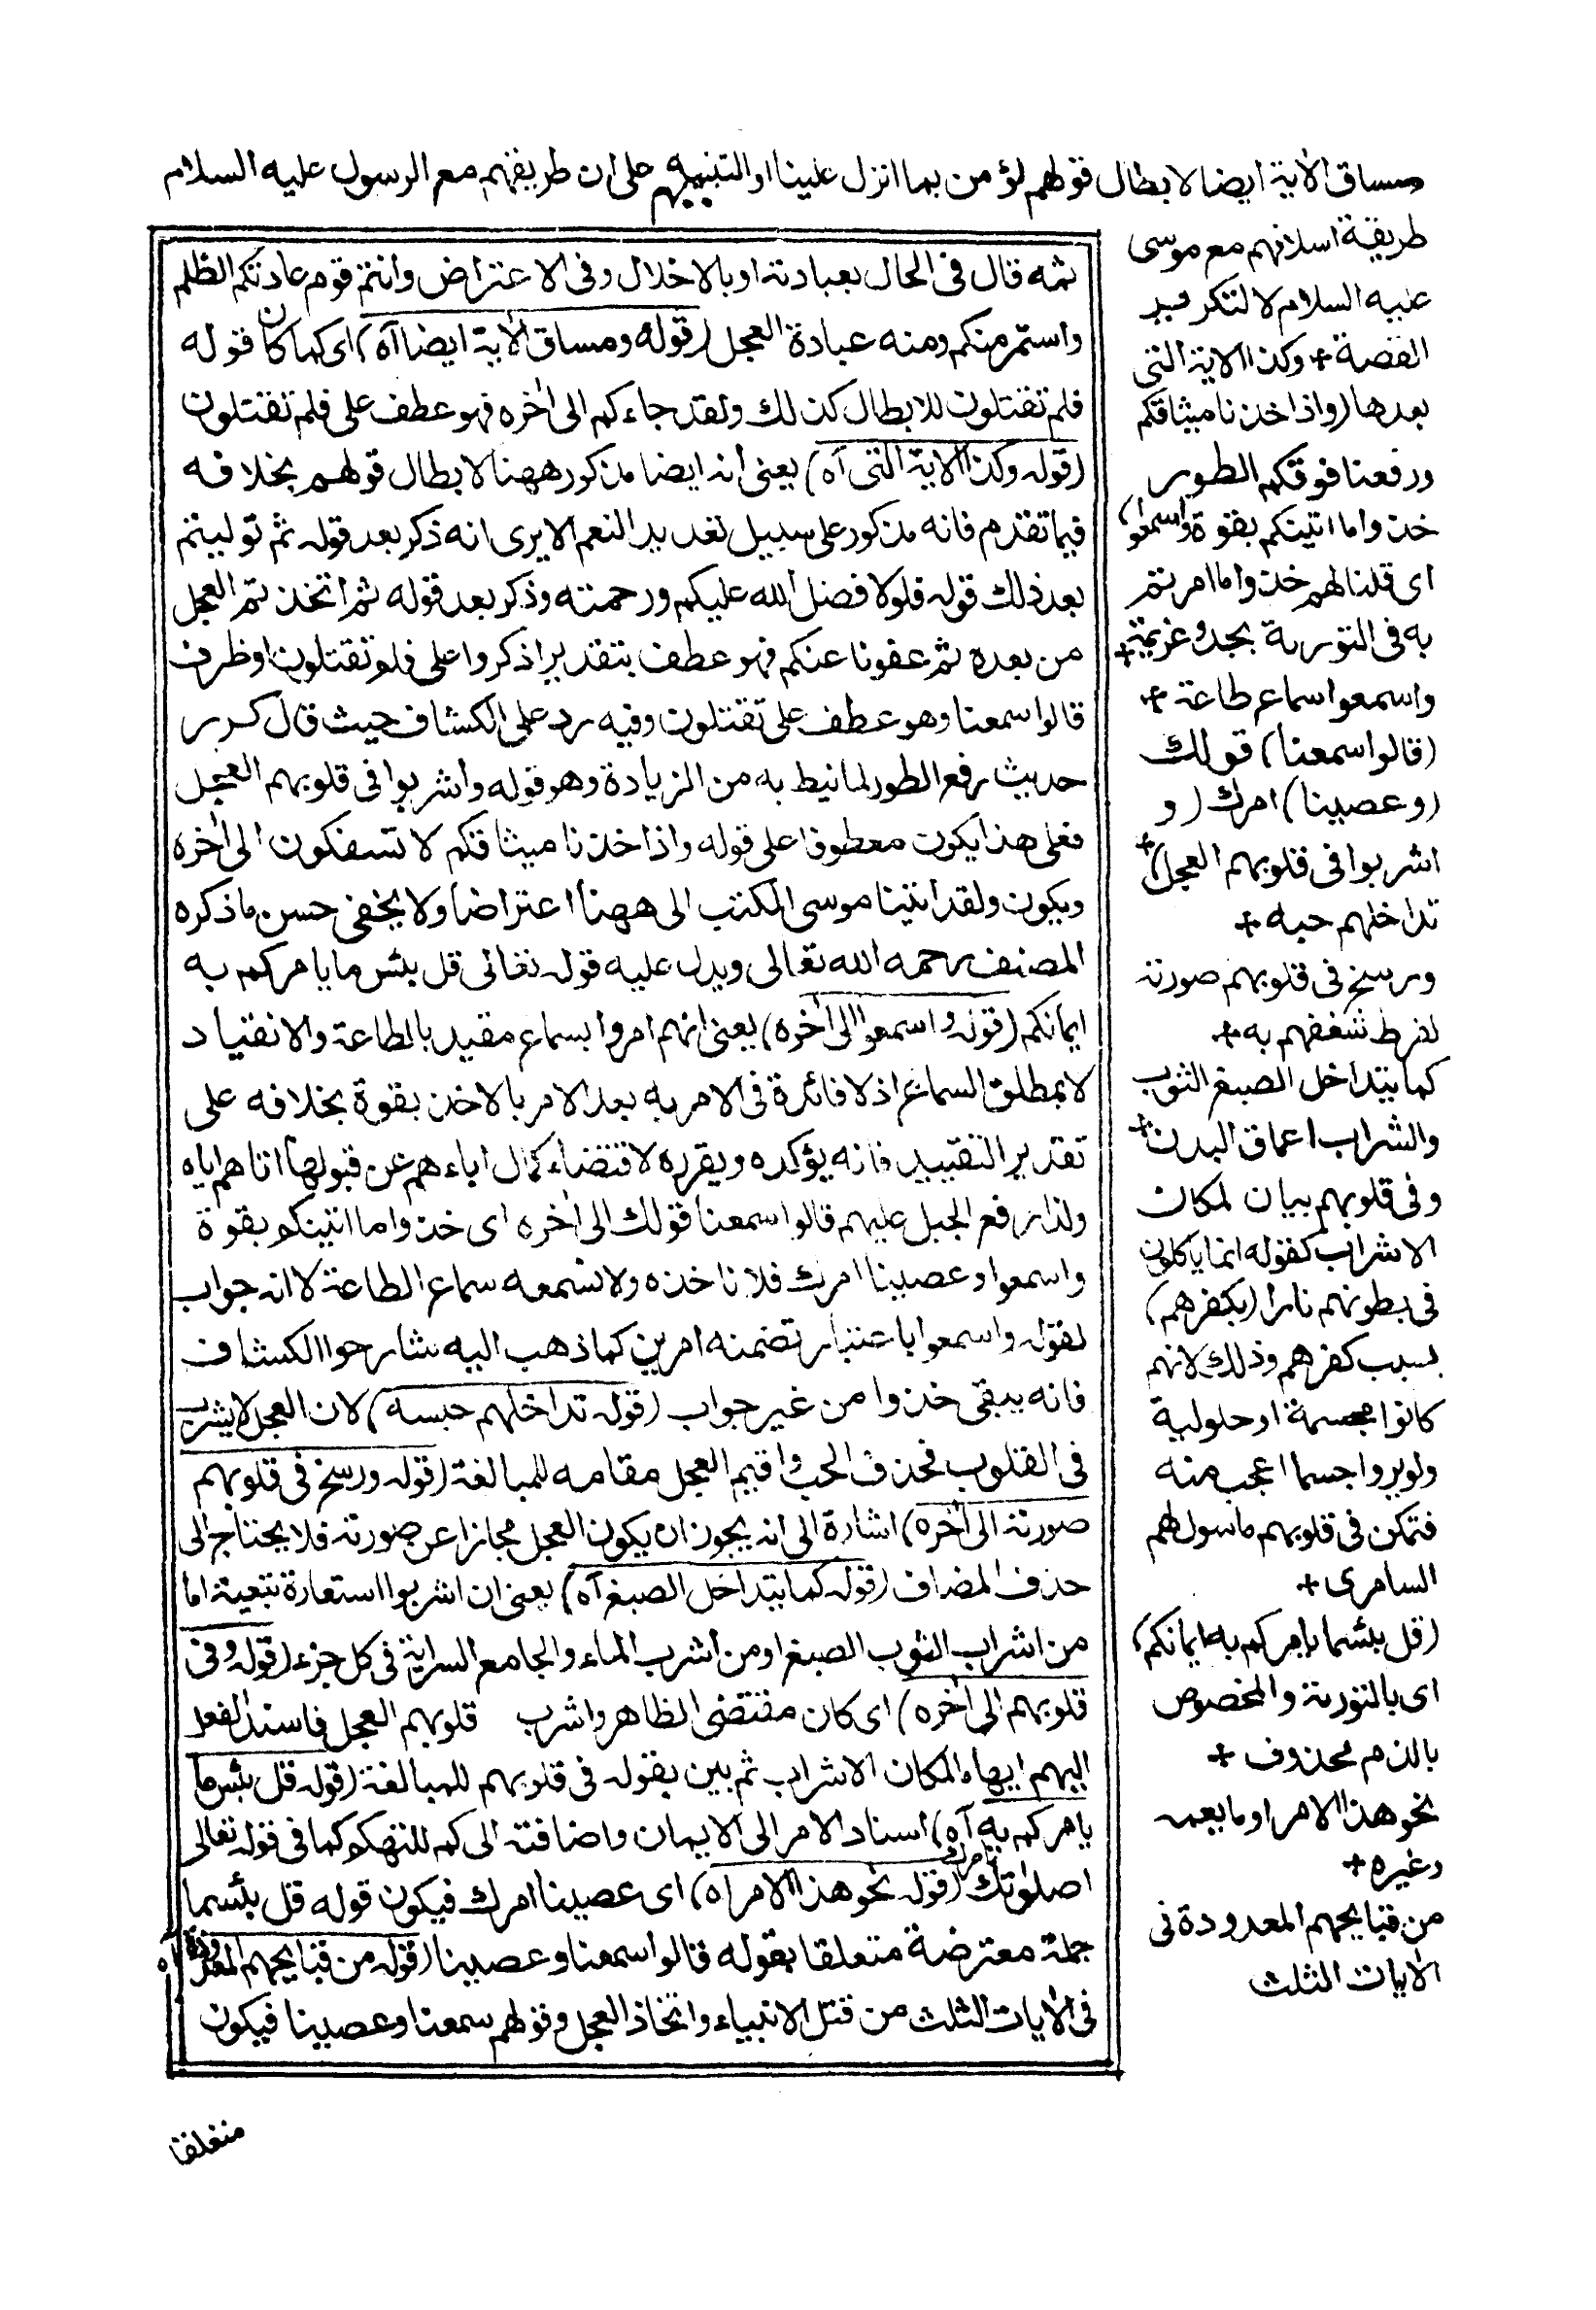 ومساق الاٰية ايضا لابطال قولهم نؤمن بما انزل علينا والتنبيه على ان طريقتهم مع الرسول عليه السلام
طريقة اسلافهم مع موسى
عليه السلام لا لتكرير
القصة + وكذا الاية التى
بعدها (واذ اخذنا ميثاقكم
ورفعنا فوقكم الطور
خذوا ما اتينكم بقوة واسمعوا)
اى قلنا لهم خذوا ما امرتم
به فى التورىة بجد وعزيمة +
واسمعوا سماع طاعة +
(قالوا سمعنا) قولك
(وعصينا) امرك (و
اشربوا فى قلوبهم العجل) +
تداخلهم حبه +
ورسخ فى قلوبهم صورته
لفرط شغفهم به +
كما يتداخل الصبغ الثوب
والشراب اعماق البدن +
وفى قلوبهم بيان لمكان
الاشراب كقوله انما ياكلون
فى بطونهم نارا (بكفرهم)
بسبب كفرهم وذلك لانهم
كانوا مجسمة او حلولية
ولم يروا جسما اعجب منه
فتمكن فى قلوبهم ما سول لهم
السامرى +
(قل بئسما يامركم به ايمانكم)
اى بالتورىة والمخصوص
بالذم محذوف +
نحو هذا الامر او ما يعمه
وغيره +
من قبايحهم المعدودة فى
الاٰيات الثلث
ثمه قال فى الحال بعبادته او بالاخلال وفى الاعتراض وانتم قوم عادتكم الظلم
واستمر منكم ومنه عبادة العجل (قوله ومساق الاٰية ايضا آه) اى كما كان قوله
فلم تقتلون للابطال كذلك ولقد جاءكم الى اٰخره فهو عطف على فلم تقتلون
(قوله وكذا الاية التى آه) يعنى انه ايضا مذكور ههنا لابطال قولهم بخلافه
فيما تقدم فانه مذكور على سبيل تعديد النعم الا يرى انه ذكر بعد قوله ثم توليتم
بعد ذلك قوله فلولا فضل الله عليكم ورحمته وذكر بعد قوله ثم اتخذتم العجل
من بعده ثم عفونا عنكم فهو عطف بتقدير اذكروا على فلم تقتلون او ظرف
قالوا سمعنا وهو عطف على تقتلون وفيه رد على الكشاف حيث قال كرر
حديث رفع الطور لما نيط به من الزيادة وهو قوله واشربوا فى قلوبهم العجل
فعلى هذا يكون معطوفا على قوله واذ اخذنا ميثاقكم لا تسفكون الى اٰخره
ويكون ولقد اتينا موسى الكتب الى ههنا اعتراضا ولا يخفى حسن ما ذكره
المصنف رحمه الله تعالى ويدل عليه قوله تعالى قل بئس ما يامركم به
ايمانكم (قوله واسمعوا الى اٰخره) يعنى انهم امروا بسماع مقيد بالطاعة والانقياد
لا بمطلق السماع اذ لا فائدة فى الامر به بعد الامر بالاخذ بقوة بخلافه على
تقدير التقييد فانه يؤكده ويقرره لاقتضاء كمال اباءهم عن قبولها اتاهم اياه
ولذا رفع الجبل عليهم قالوا سمعنا قولك الى اٰخره اى خذوا ما اتينكم بقوة
واسمعوا وعصينا امرك فلا ناخذه ولا نسمعه سماع الطاعة لا انه جواب
لقوله واسمعوا باعتبار تضمنه امرين كما ذهب اليه شارحوا الكشاف
فانه يبقى خذوا من غير جواب (قوله تداخلهم حبه) لان العجل لا يشرب
فى القلوب فحذف الحب واقيم العجل مقامه للمبالغة (قوله ورسخ فى قلوبهم
صورته الى اٰخره) اشارة الى انه يجوز ان يكون العجل مجازا عن صورته فلا يحتاج الى
حذف المضاف (قوله كما يتداخل الصبغ آه) يعنى ان اشربوا استعارة تبعية اما
من اشراب الثوب الصبغ او من اشرب الماء والجامع السراية فى كل جزء (قوله وفى
قلوبهم الى اٰخره) اى كان مقتضى الظاهر واشرب قلوبهم العجل فاسند الفعل
اليهم ايهاما لمكان الاشراب ثم بين بقوله فى قلوبهم للمبالغة (قوله قل بئس ما
يامركم به آه) اسناد الامر الى الايمان واضافته الى كم للتهكم كما فى قوله تعالى
اصلوٰتك تامرك (قوله نحو هذا الامر اه) اى عصينا امرك فيكون قوله قل بئسما
جملة معترضة متعلقا بقوله قالوا سمعنا وعصينا (قوله من قبايحهم المعدودة آه
فى الاٰيات الثلث من قتل الانبياء واتخاذ العجل وقولهم سمعنا وعصينا فيكون
متعلقا